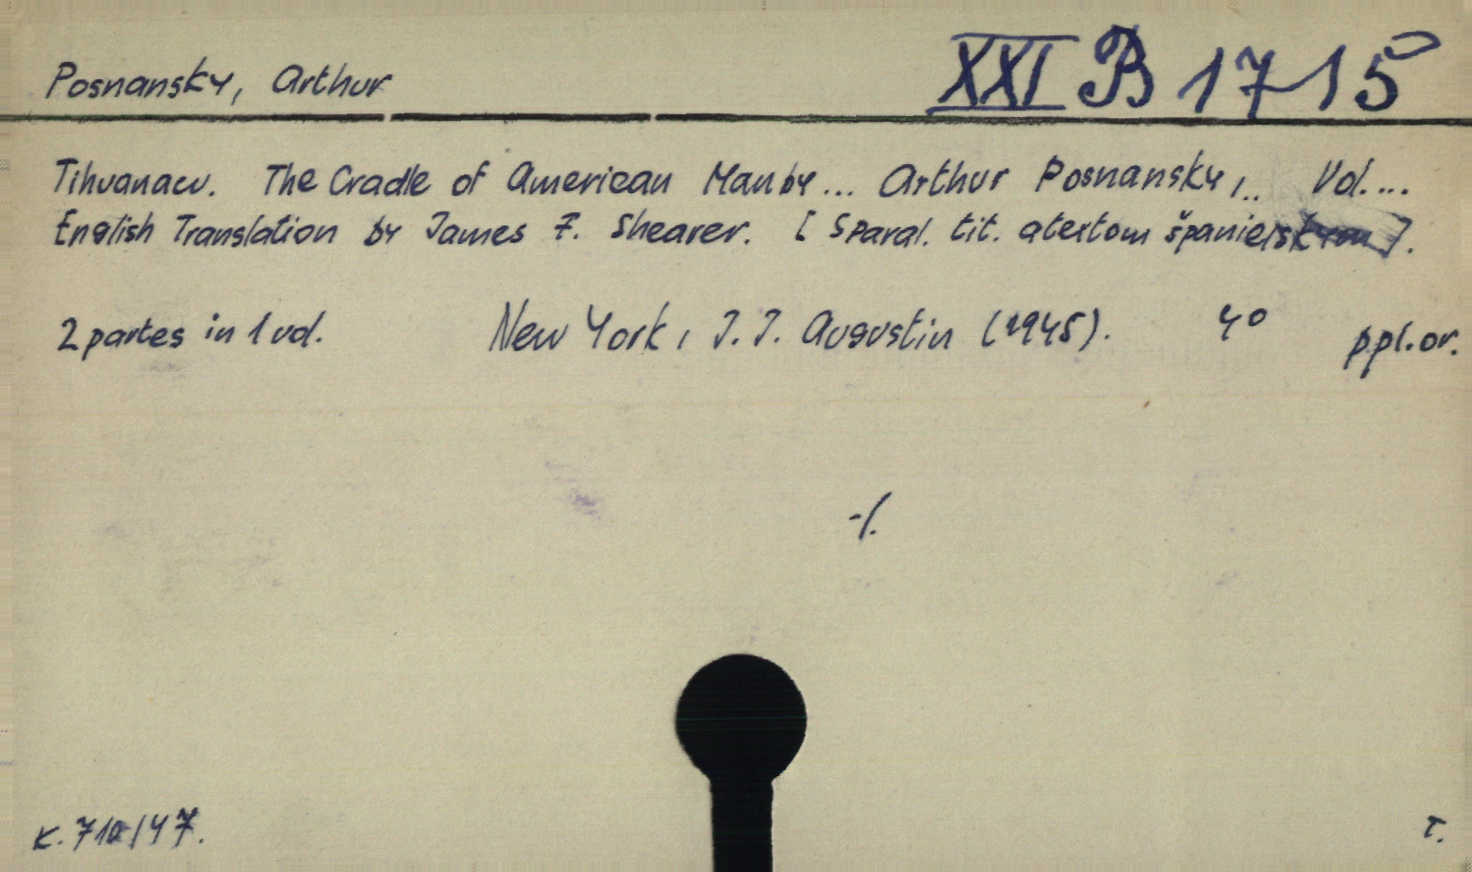 Posnansky, Arthur XXI B 1715
Tihuanacu. The Cradle of American Man by... Arthur Posnansky,.. Vol....
English Translation by James F. Shearer. [S paral. tit. a textom španielskym].
2 partes in 1 vol. New York, J. J. Augustin (1945). 4° ppl. or.
-/.
K. 712/47. T.